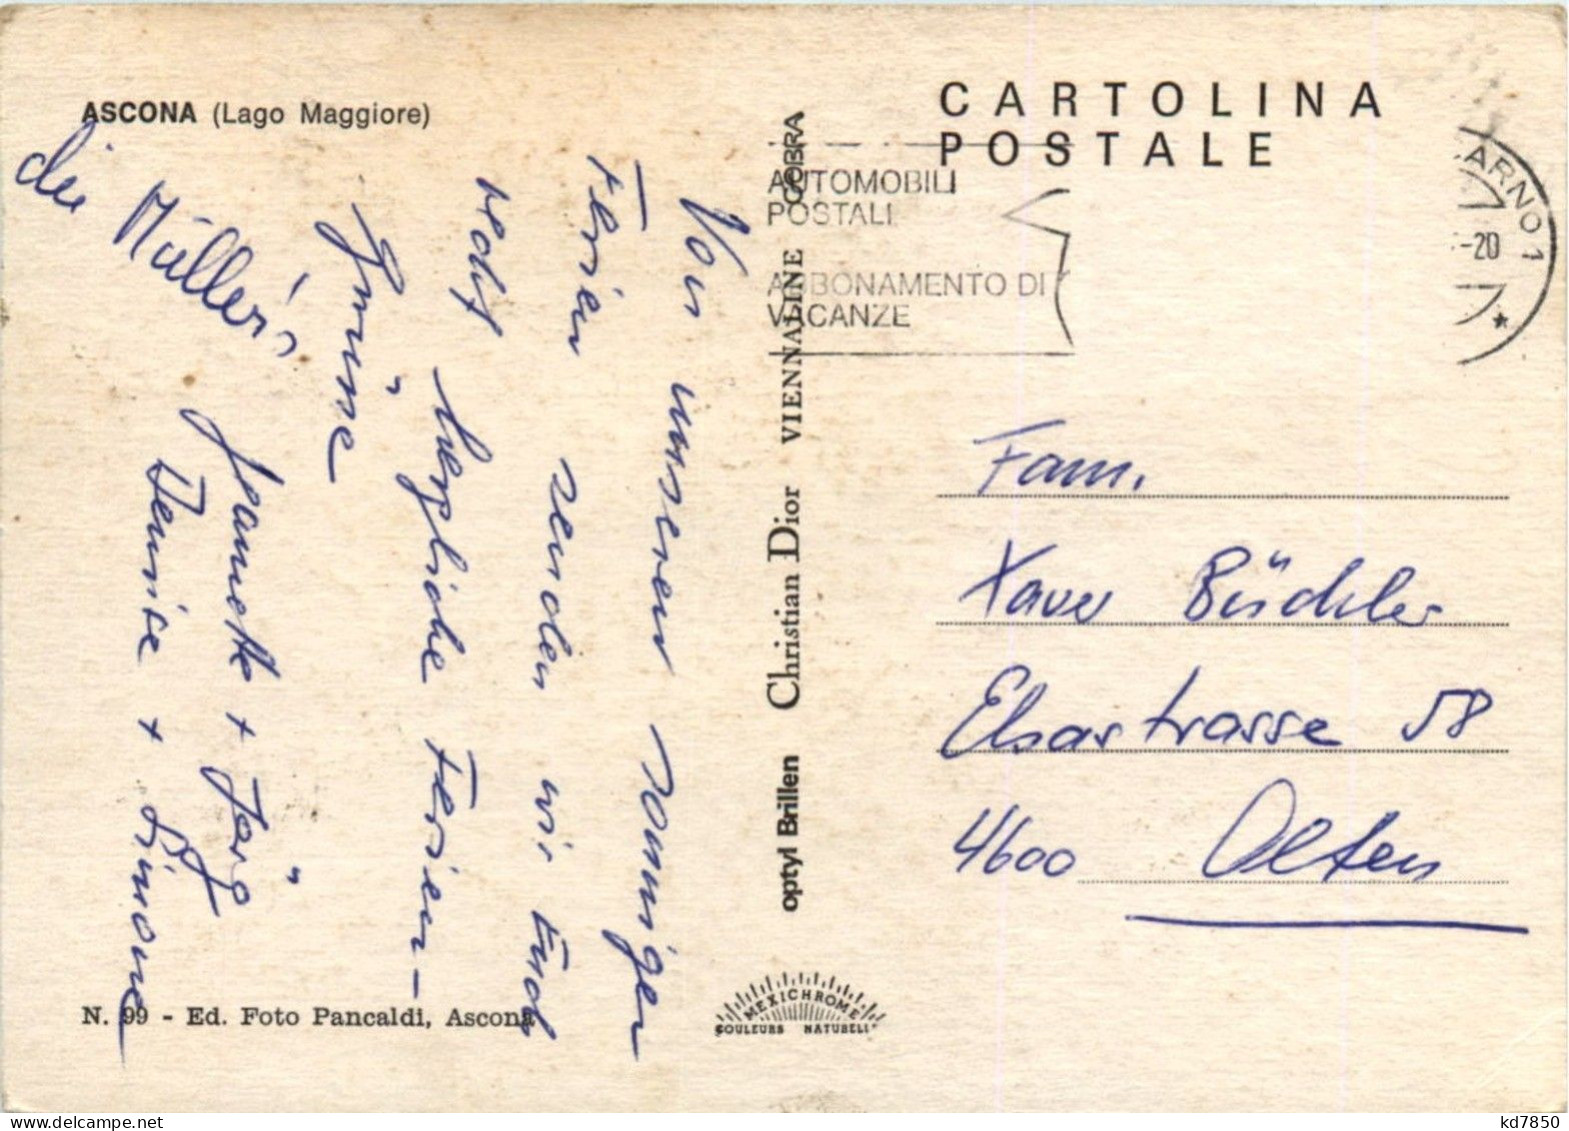 ASCONA (Lago Maggiore)
Von unseren sonnigen
Ferien senden wir Euch
recht herzliche Ferien-
Grüsse
die Müller's
Jeanette + Jörg
Denise + Simone
N. 99 - Ed. Foto Pancaldi, Ascona
optyl Brillen Christian Dior VIENNALINE COBRA
MEXICHROME
COULEURS NATURELLES
CARTOLINA
POSTALE
AUTOMOBILI
POSTALI
ABBONAMENTO DI
VACANZE
ARNO 1
-20
Fam.
Xaver Büchler
Elsastrasse 58
4600 Olten
www.delcampe.net
kd7850